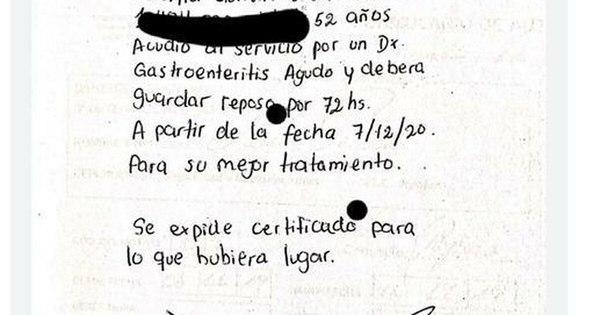 52 años
Acudio al servicio por un Dx.
Gastroenteritis Agudo y debera
guardar reposo por 72 hs.
A partir de la fecha 7/12/20.
Para su mejor tratamiento.
Se expide certificado para
lo que hubiera lugar.